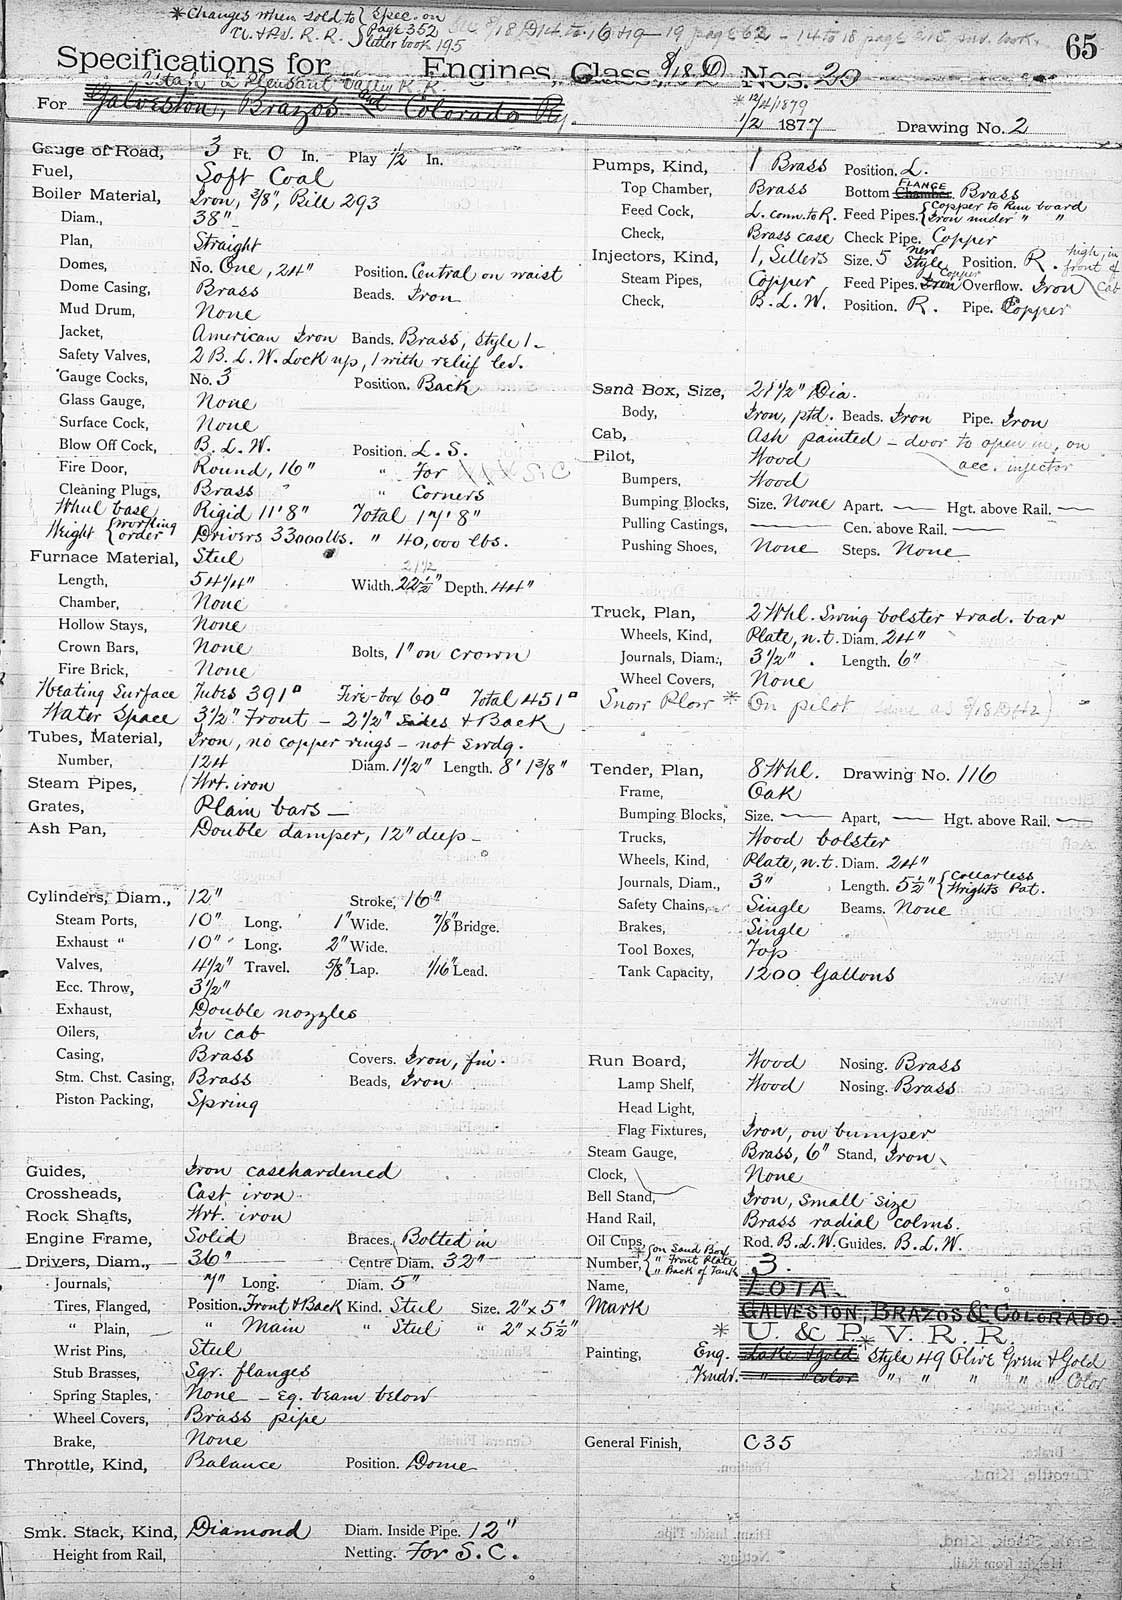 *Changes when sold to { Spec. on
U. & P.V. R. R. { Page 352
letter book 195
65
Specifications for Engines, Class 8/18 D Nos. 23
Utah & Pleasant Valley R.R.
For Galveston, Brazos and Colorado Ry.
* 12/4/1879
1/2 1877 Drawing No. 2
Gauge of Road, 3 Ft. 0 In. Play 1/2 In.
Fuel, Soft Coal
Boiler Material, Iron, 3/8", Bill 293
Diam., 38"
Plan, Straight
Domes, No. One, 24" Position. Central on waist
Dome Casing, Brass Beads. Iron
Mud Drum, None
Jacket, American Iron Bands. Brass, Style 1-
Safety Valves, 2 B. L. W. Lock up, 1 with relief lev.
Gauge Cocks, No. 3 Position. Back
Glass Gauge, None
Surface Cock, None
Blow Off Cock, B. L. W. Position. L. S.
Fire Door, Round, 16" " For
Cleaning Plugs, Brass " Corners
Wheel base Rigid 11' 8" Total 17' 8"
Weight { working order Drivers 33000 lbs. " 40,000 lbs.
Furnace Material, Steel
21 1/2
Length, 54 1/4" Width. 22 1/2" Depth. 44"
Chamber, None
Hollow Stays, None
Crown Bars, None Bolts, 1" on crown
Fire Brick, None
Heating Surface Tubes 391□ Fire-box 60□ Total 451□
Water Space 3 1/2" Front - 2 1/2" Sides & Back
Tubes, Material, Iron, no copper rings - not swdg.
Number, 124 Diam. 1 1/2" Length. 8' 1 3/8"
Steam Pipes, Wrt. iron
Grates, Plain bars -
Ash Pan, Double damper, 12" deep -
Cylinders, Diam., 12" Stroke, 16"
Steam Ports, 10" Long. 1" Wide. 7/8" Bridge.
Exhaust " 10" Long. 2" Wide.
Valves, 4 1/2" Travel. 5/8" Lap. 1/16" Lead.
Ecc. Throw, 3 1/2"
Exhaust, Double nozzles
Oilers, In cab
Casing, Brass Covers. Iron, fin.
Stm. Chst. Casing, Brass Beads, Iron
Piston Packing, Spring
Guides, Iron casehardened
Crossheads, Cast iron
Rock Shafts, Wrt. iron
Engine Frame, Solid Braces. Bolted in
Drivers, Diam., 36" Centre Diam. 32"
Journals, 7" Long. Diam. 5"
Tires, Flanged, Position. Front & Back Kind. Steel Size. 2" x 5"
" Plain, " Main " Steel " 2" x 5 1/2"
Wrist Pins, Steel
Stub Brasses, Sqr. flanges
Spring Staples, None - Eq. beam below
Wheel Covers, Brass pipe
Brake, None
Throttle, Kind, Balance Position. Dome
Smk. Stack, Kind, Diamond Diam. Inside Pipe. 12"
Height from Rail, Netting. For S. C.
Pumps, Kind, 1 Brass Position. L.
Top Chamber, Brass Bottom Chamber. FLANGE Brass
Feed Cock, L. conn. to R. Feed Pipes. { Copper to Run board
Iron under " "
Check, Brass case Check Pipe. Copper
Injectors, Kind, 1, Sellers Size. 5 new Style Position. R. high, in front of cab
Steam Pipes, Copper Feed Pipes. Iron Copper Overflow. Iron
Check, B. L. W. Position. R. Pipe. Copper
Sand Box, Size, 21 1/2" Dia.
Body, Iron, ptd. Beads. Iron Pipe. Iron
Cab, Ash painted - door to open in, on
acc. injector
Pilot, Wood
Bumpers, Wood
Bumping Blocks, Size. None Apart. — Hgt. above Rail. —
Pulling Castings, — Cen. above Rail. —
Pushing Shoes, None Steps. None
Truck, Plan, 2 Whl. Swing bolster & rad. bar
Wheels, Kind, Plate, n.t. Diam. 24"
Journals, Diam., 3 1/2" . Length. 6"
Wheel Covers, None
Snow Plow * On pilot
Tender, Plan, 8 Whl. Drawing No. 116
Frame, Oak
Bumping Blocks, Size. — Apart, — Hgt. above Rail. —
Trucks, Wood bolster
Wheels, Kind, Plate, n.t. Diam. 24"
Journals, Diam., 3" Length. 5 1/2" { Collarless
Wrights Pat.
Safety Chains, Single Beams. None
Brakes, Single
Tool Boxes, Top
Tank Capacity, 1200 Gallons
Run Board, Wood Nosing. Brass
Lamp Shelf, Wood Nosing. Brass
Head Light,
Flag Fixtures, Iron, on bumper
Steam Gauge, Brass, 6" Stand, Iron
Clock, None
Bell Stand, Iron, small size
Hand Rail, Brass radial colms.
Oil Cups, Rod. B. L. W. Guides. B. L. W.
Number, * { on Sand Box
" Front Plate
" Back of Tank 3.
Name, LOTA
Mark GALVESTON, BRAZOS & COLORADO.
* U. & P. V. R. R.
Painting, Eng. Lake & gold * Style 49 Olive Green & Gold
Tendr. " " color " " " " " Color
General Finish, C 35